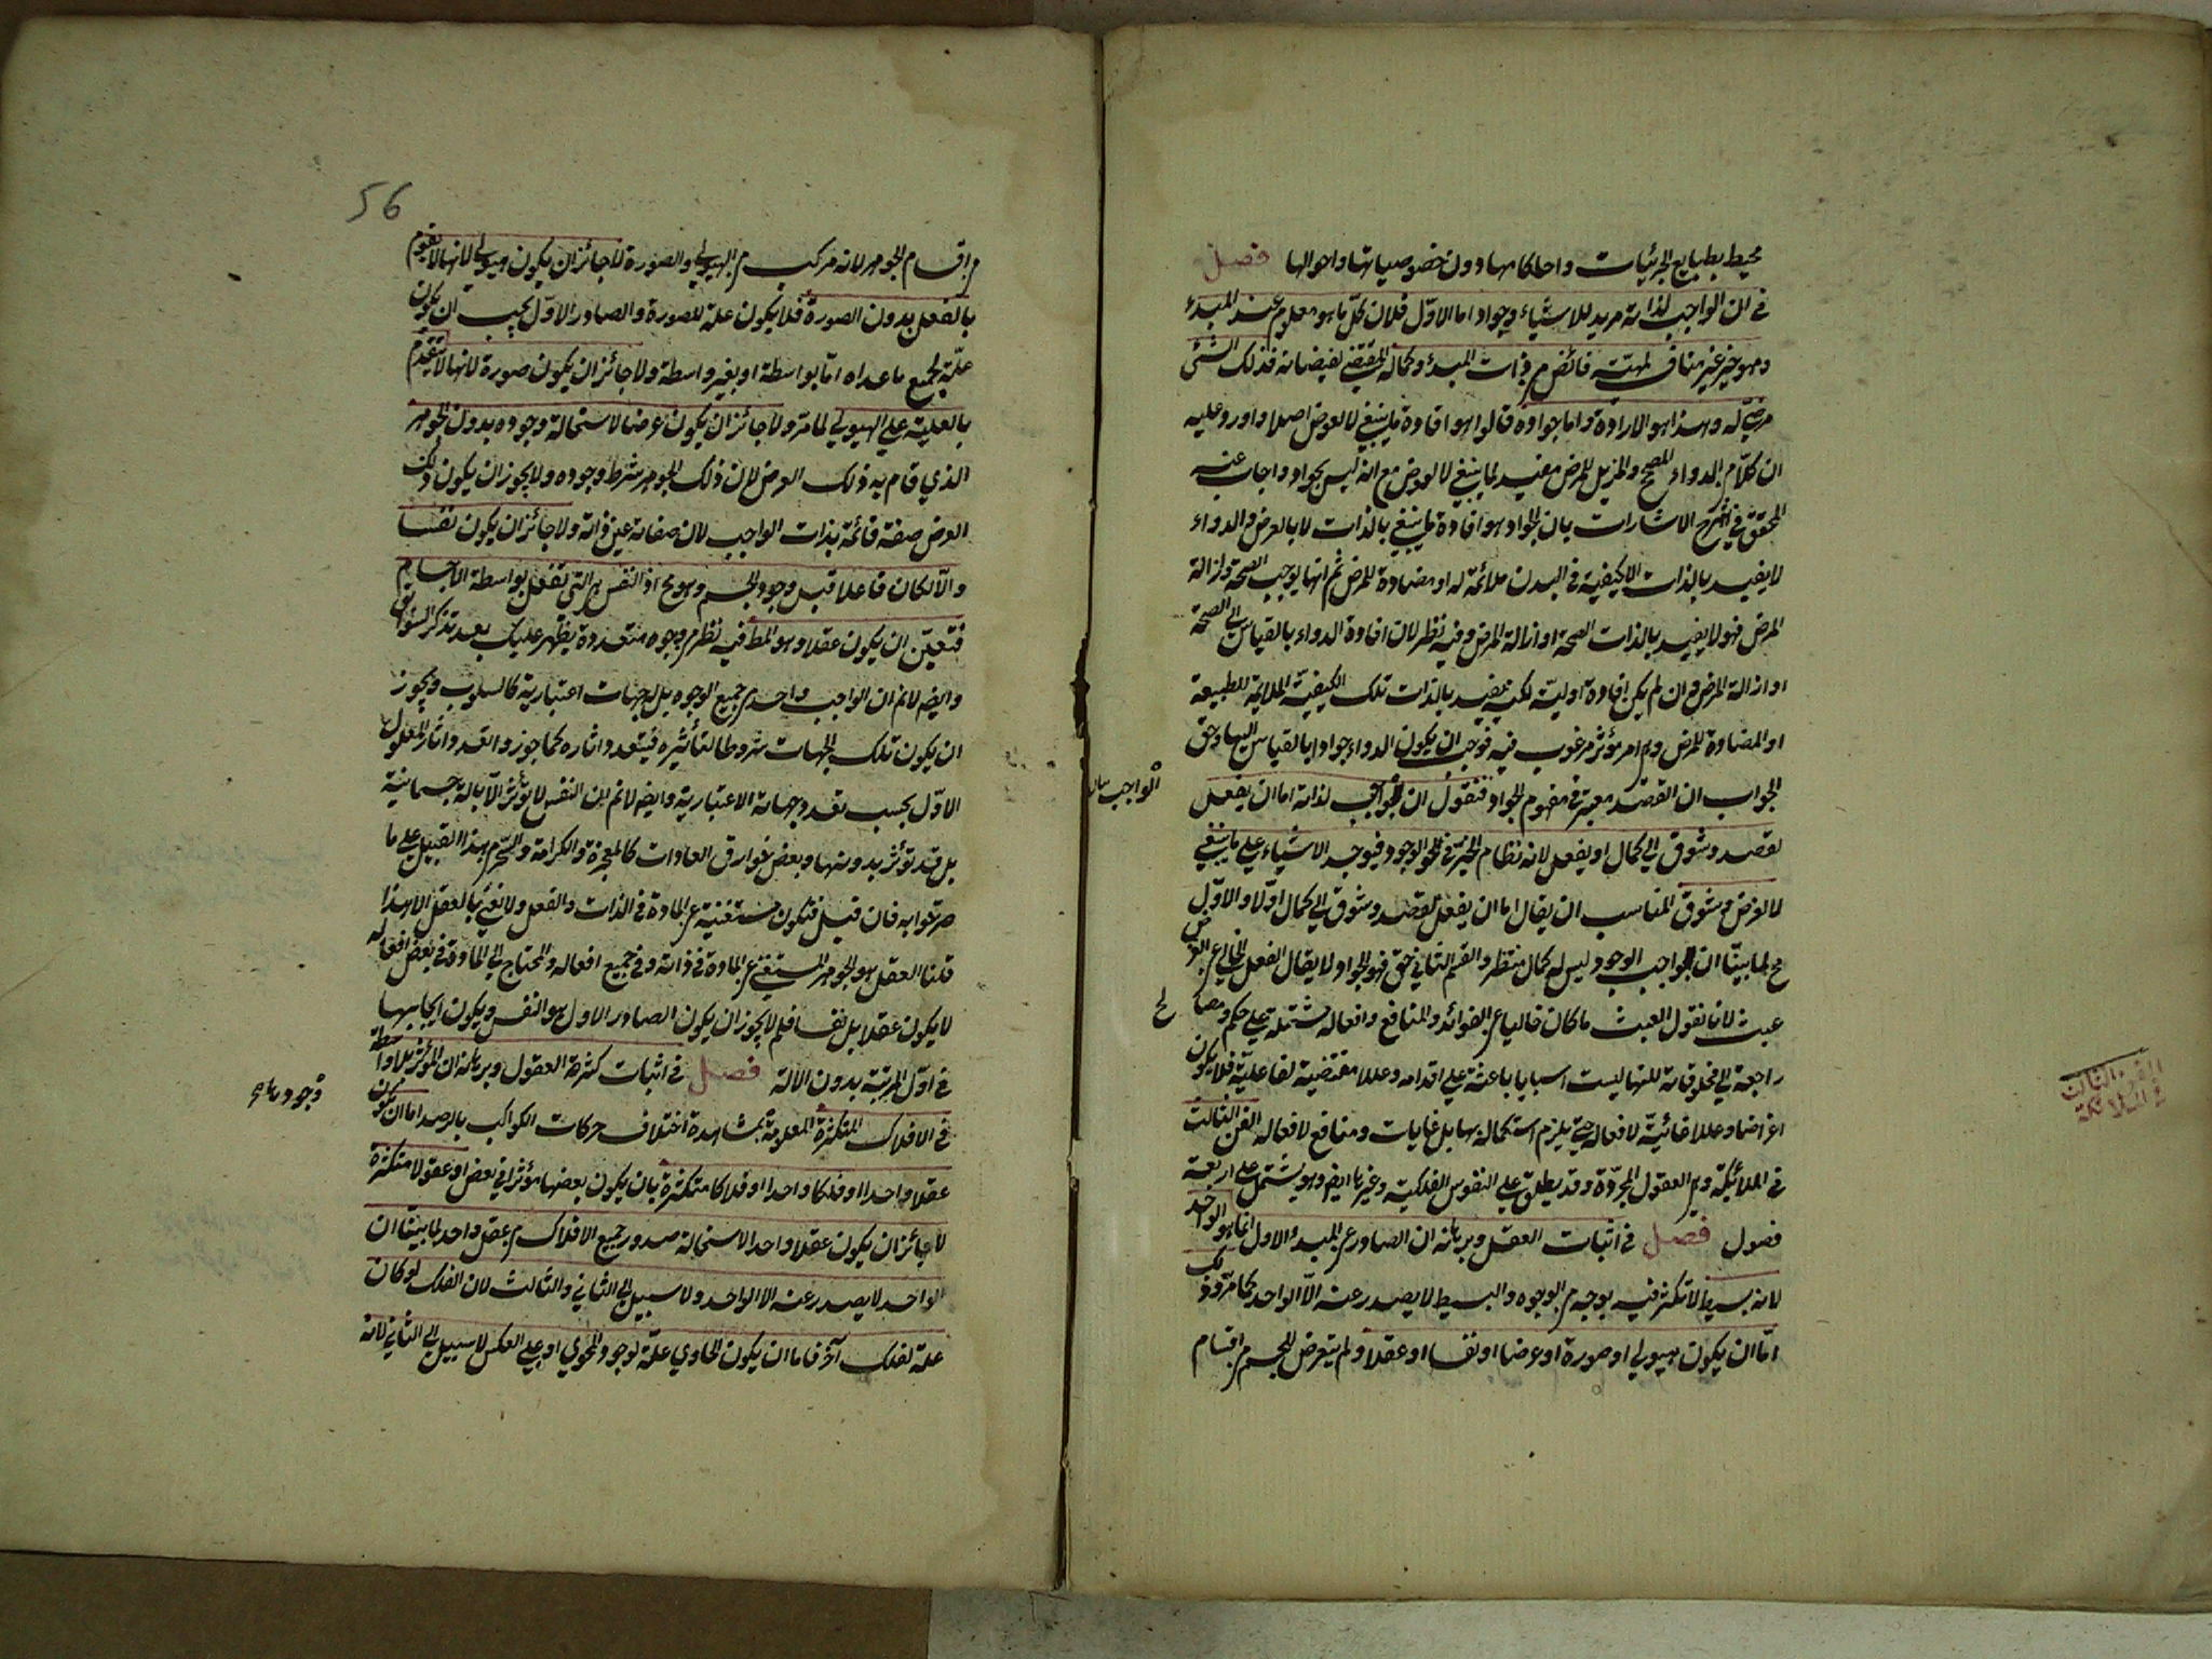 محيط بطبايع الجزئيات واحكامها دون خصوصياتها واحوالها فصل
في ان الواجب لذاته مريد للاشياء وجواد اما الاول فلان كل ما هو معلوم عند المبدء
وهو خير غير مناف لمهيته فائض من ذات المبدء وكماله المقتضي لفيضانه فذلك الشئ
مرضي له وهذا هو الارادة واما جواده قالوا هو افادة ما ينبغي لا لعوض اصلا واورد عليه
ان كلا من الدواء المصحح والمزيل للمرض مفيد لما ينبغي لا لعوض مع انه ليس بجواد واجاب عنه
المحقق في شرح الاشارات بان الجواد هو افادة ما ينبغي بالذات لا بالعرض والدواء
لا يفيد بالذات الا كيفية في البدن ملائمة له او مضادة للمرض ثم انها يوجب الصحة وازالة
المرض فهو لا يفيد بالذات الصحة او ازالة المرض وفيه نظر لان افادة الدواء بالقياس الى الصحة
او ازالة المرض وان لم يكن افادة اولية لكنه يفيد بالذات تلك الكيفية الملايمة للطبيعة
او المضادة للمرض وهي امر مؤثر مرغوب فيه فوجب ان يكون الدواء جوادا بالقياس اليها وحق
الجواب ان القصد معتبر في مفهوم الجواد فنقول ان الواجب لذاته اما ان يفعل
لقصد وشوق الى كمال او يفعل لانه نظام الخير في الوجود فيوجد الاشياء على ما ينبغي
لا لغرض وشوق المناسب ان يقال اما ان يفعل لقصد وشوق الى كمال اولا والاول
مح لما بينا ان الواجب الوجود ليس له كمال منتظر والقسم الثاني حق فهو الجواد لا يقال الفعل الخالي عن الغرض
عبث لانا نقول العبث ما كان خاليا عن الفوائد والمنافع وافعاله مشتملة على حكم ومصالح
راجعة الى مخلوقاته لكنها ليست اسبابا باعثة على اقدامه وعللا مقتضية لفاعليته فلا يكون
اغراضا وعللا غائية لافعاله حتى يلزم استكماله بها بل غايات ومنافع لافعاله الفن الثالث
في الملائكة وهي العقول المجردة وقد يطلق على النفوس الفلكية وغيرها ايضا وهو يشتمل على اربعة
فصول فصل في اثبات العقل وبرهانه ان الصادر عن المبدء الاول انما هو الواحد
لانه بسيط لا تكثر فيه بوجه من الوجوه والبسيط لا يصدر عنه الا الواحد كما مر وذلك
اما ان يكون هيولى او صورة او عرضا او نفسا او عقلا ولم يتعرض للجسم من اقسام
الواجب
الفن الثالث
في الملائكة
56
من اقسام الجوهر لانه مركب من الهيولى والصورة لا جائز ان يكون هيولى لانها لا يقوم
بالفعل بدون الصورة فلا يكون علة للصورة والصادر الاول يجب ان يكون
علة لجميع ما عداه اما بواسطة او بغير واسطة ولا جائز ان يكون صورة لانها لا يتقدم
بالعلية على الهيولى لما مر ولا جائز ان يكون عرضا لاستحالة وجوده بدون الجوهر
الذي قام به ذلك العرض لان ذلك الجوهر شرط وجوده ولا يجوز ان يكون ذلك
العرض صفة قائمة بذات الواجب لان صفاته عين ذاته ولا جائز ان يكون نفسا
والا لكان فاعلا قبل وجود الجسم وهو مح اذ النفس هي التي تفعل بواسطة الاجسام
فتعين ان يكون عقلا وهو المط فيه نظر من وجوه متعددة يظهر عليك بعد تذكر السوابق
وايضا لا نم ان الواجب واحد من جميع الوجوه بل له جهات اعتبارية كالسلوب ويجوز
ان يكون تلك الجهات شروطا لتأثيره فيتعدد اثاره كما جوز والتعدد اثار المعلول
الاول بحسب تعدد جهاته الاعتبارية وايضا لا نم ان النفس لا يؤثر الا بالة جسمانية
بل قد تؤثر بدونها وبعض خوارق العادات كالمعجزة والكرامة والسحر من هذا القبيل على ما
صرحوا به فان قيل فتكون مستغنية عن المادة في الذات والفعل ولا نعني بالعقل الا هذا
قلنا العقل هو الجوهر المستغني عن المادة في ذاته وفي جميع افعاله والمحتاج الى المادة في بعض افعاله
لا يكون عقلا بل نفسا فلم لا يجوز ان يكون الصادر الاول هو النفس ويكون ايجابها
في اول المرتبة بدون الالة فصل في اثبات كثرة العقول وبرهانه ان المؤثر بلا واسطة
في الافلاك المتكثرة المعلومة بمشاهدة اختلاف حركات الكواكب بالرصد اما ان يكون
عقلا واحدا او فلكا واحدا او فلاكا متكثرة بان يكون بعضها مؤثرا في بعض او عقولا متكثرة
لا جائز ان يكون عقلا واحدا لاستحالة صدور جميع الافلاك من عقل واحد لما بينا ان
الواحد لا يصدر عنه الا الواحد ولا سبيل الى الثاني والثالث لان الفلك لو كان
علة لفلك آخر فاما ان يكون الحاوي علة لوجود المحوي او على العكس لا سبيل الى الثاني لانه